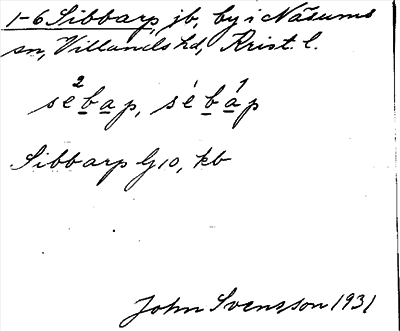 1-6 Sibbarp, jb, by i Näsums
sn, Villands hd, Krist. l.
se²bap, sébáp
Sibbarp G10, kb
John Svensson 1931